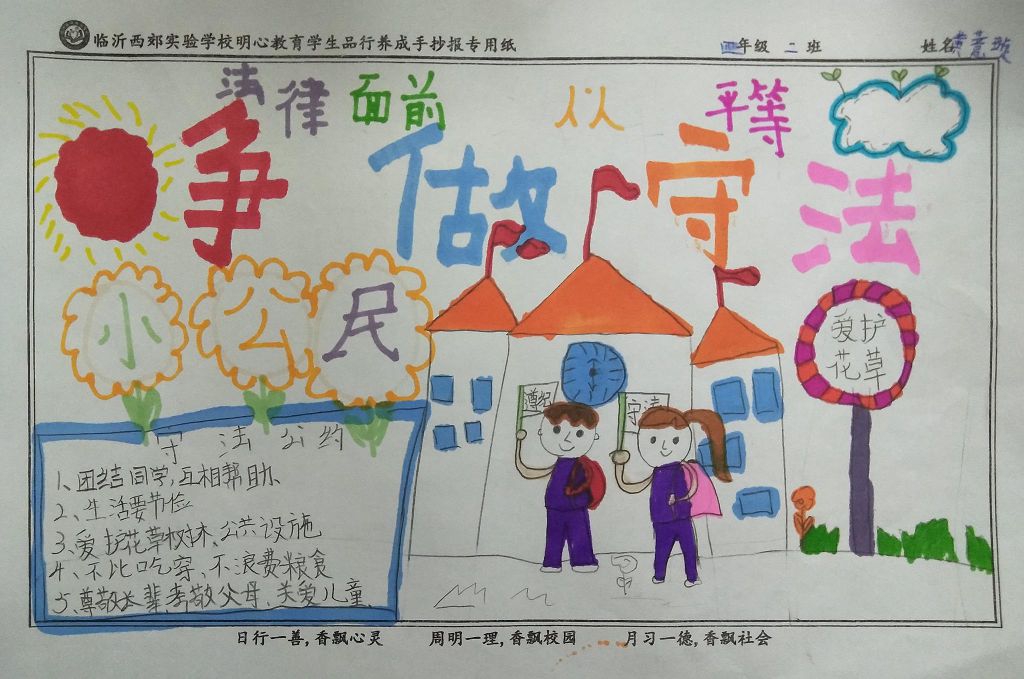 临沂西郊实验学校明心教育学生品行养成手抄报专用纸 四年级 二 班 姓名
法律面前 人人 平等
争做守法
小公民
爱护
花草
遵纪 守法
守法公约
1、团结同学,互相帮助、
2、生活要节俭
3、爱护花草树木、公共设施
4、不比吃穿、不浪费粮食
5、尊敬长辈,孝敬父母、关爱儿童、
日行一善,香飘心灵 周明一理,香飘校园 月习一德,香飘社会